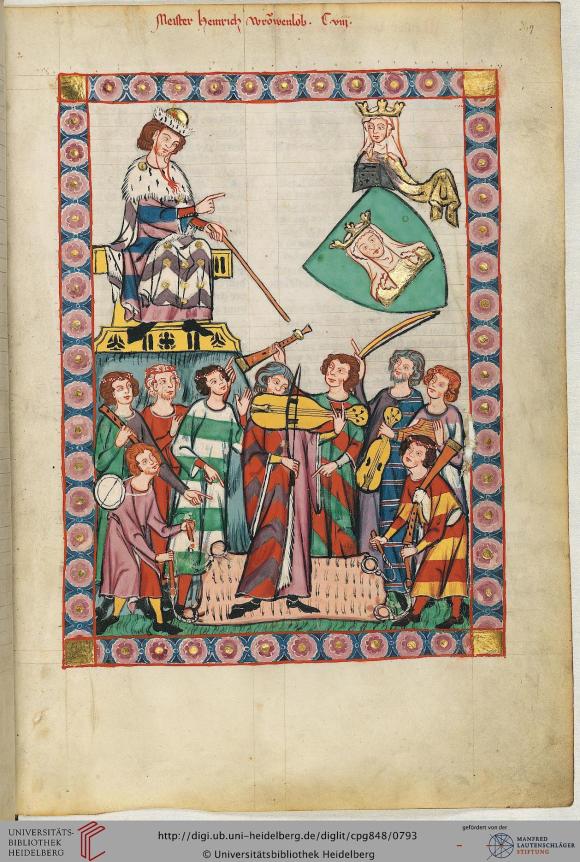 Meister Heinrich Vrŏwenlob. C viij.
UNIVERSITÄTS-
BIBLIOTHEK
HEIDELBERG
http://digi.ub.uni-heidelberg.de/diglit/cpg848/0793
© Universitätsbibliothek Heidelberg
gefördert von der
MANFRED
LAUTENSCHLÄGER
STIFTUNG